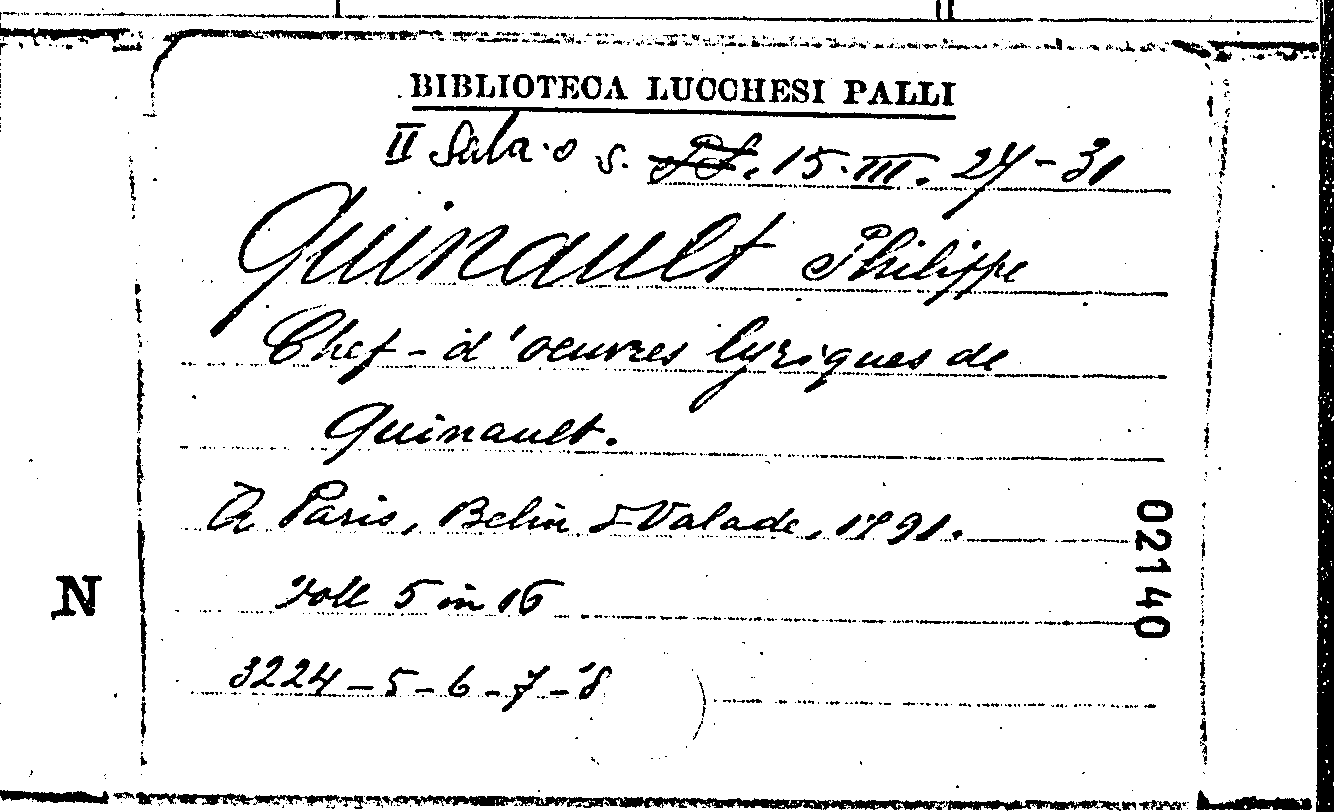 BIBLIOTECA LUCCHESI PALLI
II Sala. 15. III. 27-31
Quinault Philippe
Chef-d'oeuvres lyriques de
Quinault.
A Paris, Belin & Valade, 1791.
Voll 5 in 16
3224-5-6-7-8
02140
N